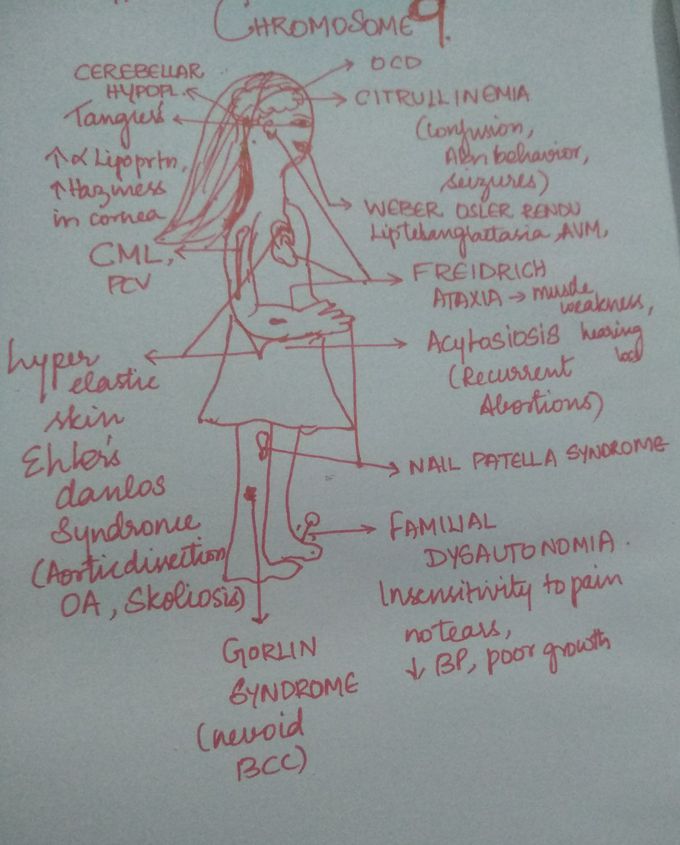 CHROMOSOME 9.
CEREBELLAR
HYPOPL.
Tangier's
↑ α Lipoprtn,
↑ Haziness
in cornea
CML,
PCV
hyper
elastic
skin
Ehler's
danlos
Syndrome
(Aortic divection
OA, Skoliosis)
OCD
CITRULLINEMIA
(Confusion,
Abn behavior,
seizures)
WEBER OSLER RENDU
Lip telangiattasia, AVM,
FREIDRICH
ATAXIA → muscle
weakness,
hearing
loss
Acytosiosis
(Recurrent
Abortions)
NAIL PATELLA SYNDROME
FAMILIAL
DYSAUTONOMIA.
Insensitivity to pain
no tears,
↓ BP, poor growth
GORLIN
SYNDROME
(nevoid
BCC)